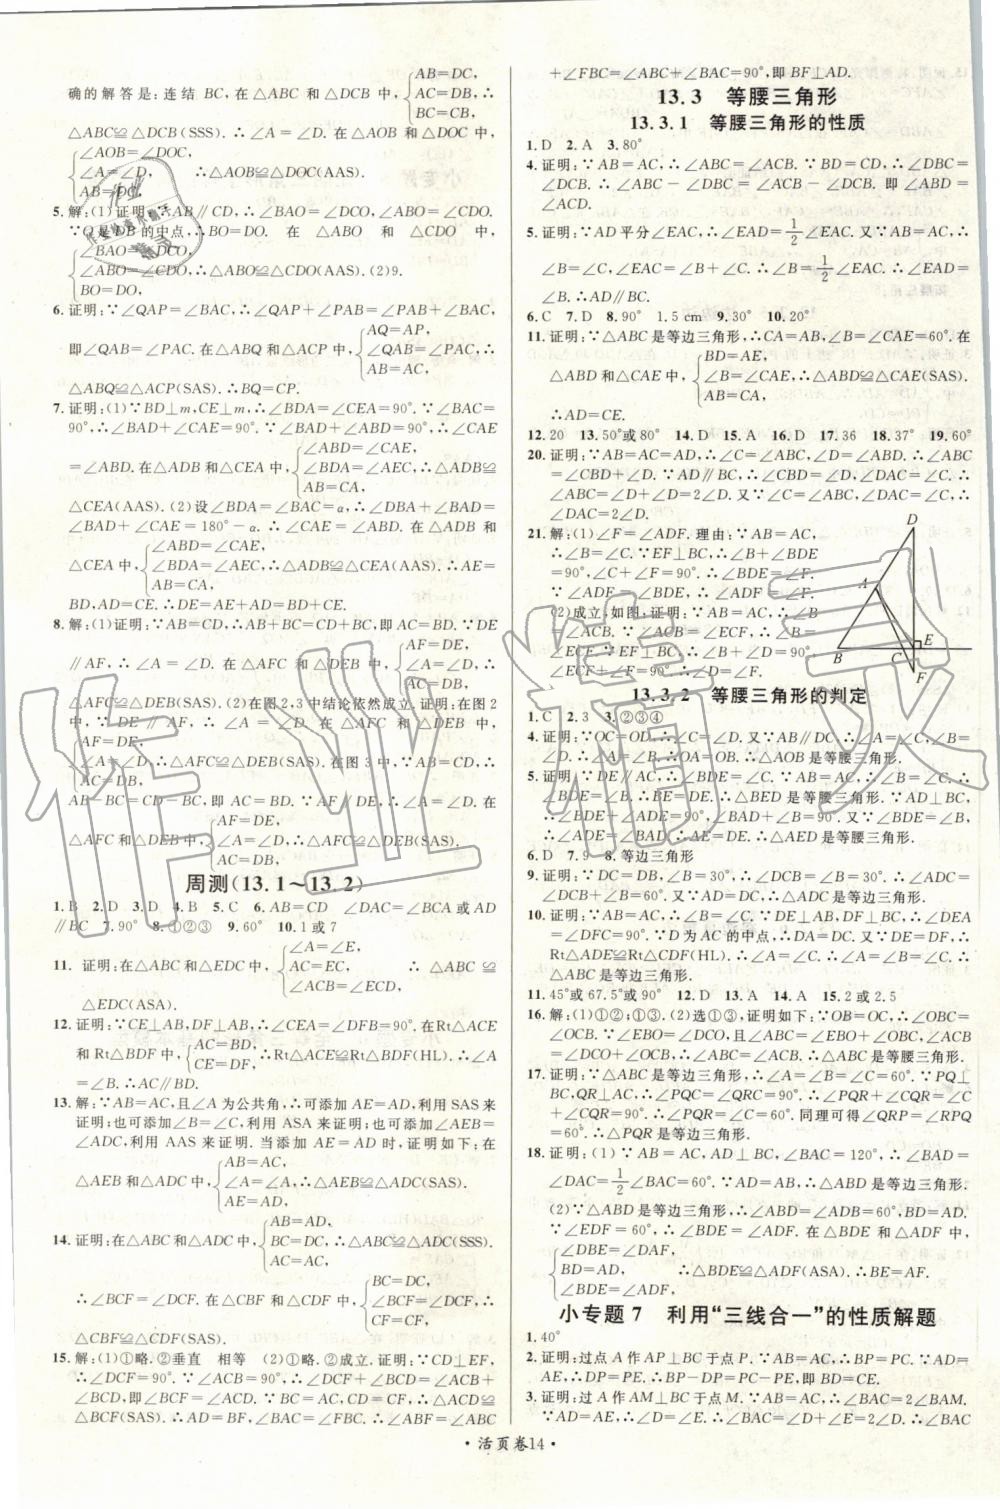 AB=DC,
确的解答是:连结 BC,在△ABC 和△DCB 中,{AC=DB,∴
BC=CB,
△ABC≌△DCB(SSS).∴∠A=∠D. 在△AOB 和△DOC 中,
∠AOB=∠DOC,
∠A=∠D, ∴△AOB≌△DOC(AAS).
AB=DC,
5. 解:(1)证明:∵AB∥CD,∴∠BAO=∠DCO,∠ABO=∠CDO.
∵O 是 DB 的中点,∴BO=DO. 在△ABO 和△CDO 中,
∠BAO=∠DCO,
∠ABO=∠CDO,∴△ABO≌△CDO(AAS).(2)9.
BO=DO,
6. 证明:∵∠QAP=∠BAC,∴∠QAP+∠PAB=∠PAB+∠BAC,
AQ=AP,
即∠QAB=∠PAC. 在△ABQ 和△ACP 中,{∠QAB=∠PAC,∴
AB=AC,
△ABQ≌△ACP(SAS).∴BQ=CP.
7. 证明:(1)∵BD⊥m,CE⊥m,∴∠BDA=∠CEA=90°.∵∠BAC=
90°,∴∠BAD+∠CAE=90°.∵∠BAD+∠ABD=90°,∴∠CAE
∠ABD=∠CAE,
=∠ABD. 在△ADB 和△CEA 中,{∠BDA=∠AEC,∴△ADB≌
AB=CA,
△CEA(AAS).(2)设∠BDA=∠BAC=α,∴∠DBA+∠BAD=
∠BAD+∠CAE=180°-α.∴∠CAE=∠ABD. 在△ADB 和
∠ABD=∠CAE,
△CEA 中,{∠BDA=∠AEC,∴△ADB≌△CEA(AAS).∴AE=
AB=CA,
BD,AD=CE.∴DE=AE+AD=BD+CE.
8. 解:(1)证明:∵AB=CD,∴AB+BC=CD+BC,即AC=BD.∵DE
AF=DE,
∥AF,∴∠A=∠D. 在△AFC 和△DEB 中,{∠A=∠D,∴
AC=DB,
△AFC≌△DEB(SAS).(2)在图2,3中结论依然成立. 证明:在图2
中,∵DE∥AF,∴∠A=∠D. 在△AFC 和△DEB 中,
AF=DE,
∠A=∠D,∴△AFC≌△DEB(SAS). 在图3中,∵AB=CD,∴
AC=DB,
AB-BC=CD-BC,即AC=BD.∵AF∥DE,∴∠A=∠D. 在
AF=DE,
△AFC 和△DEB 中,{∠A=∠D,∴△AFC≌△DEB(SAS).
AC=DB,
周测(13.1~13.2)
1. B 2. D 3. D 4. B 5. C 6. AB=CD ∠DAC=∠BCA或AD
∥BC 7. 90° 8. ①②③ 9. 60° 10. 1或7
∠A=∠E,
11. 证明:在△ABC 和△EDC 中,{AC=EC, ∴△ABC≌
∠ACB=∠ECD,
△EDC(ASA).
12. 证明:∵CE⊥AB,DF⊥AB,∴∠CEA=∠DFB=90°. 在Rt△ACE
和 Rt△BDF 中,{AC=BD, ∴Rt△ACE≌Rt△BDF(HL).∴∠A
CE=DF,
=∠B.∴AC∥BD.
13. 解:∵AB=AC,且∠A为公共角,∴可添加 AE=AD,利用 SAS 来
证明;也可添加∠B=∠C,利用 ASA 来证明;也可添加∠AEB=
∠ADC,利用 AAS 来证明. 当添加 AE=AD 时,证明如下:在
AB=AC,
△AEB 和△ADC 中,{∠A=∠A,∴△AEB≌△ADC(SAS).
AE=AD,
AB=AD,
14. 证明:在△ABC 和△ADC 中,{BC=DC,∴△ABC≌△ADC(SSS).
AC=AC,
BC=DC,
∴∠BCF=∠DCF. 在△CBF 和△CDF 中,{∠BCF=∠DCF,∴
CF=CF,
△CBF≌△CDF(SAS).
15. 解:(1)①略. ②垂直 相等 (2)②成立. 证明:∵CD⊥EF,
∴∠DCF=90°.∵∠ACB=90°,∴∠DCF+∠BCD=∠ACB+
∠BCD,即∠BCF=∠ACD.∵BC=AC,CD=CF,∴△ACD≌
△BCF(SAS).∴AD=BF,∠BAC=∠FBC.∴∠ABF=∠ABC
+∠FBC=∠ABC+∠BAC=90°,即BF⊥AD.
13.3 等腰三角形
13.3.1 等腰三角形的性质
1. D 2. A 3. 80°
4. 证明:∵AB=AC,∴∠ABC=∠ACB.∵BD=CD,∴∠DBC=
∠DCB.∴∠ABC-∠DBC=∠ACB-∠DCB. 即∠ABD=
∠ACD.
5. 证明:∵AD平分∠EAC,∴∠EAD=1/2∠EAC. 又∵AB=AC,∴
∠B=∠C,∠EAC=∠B+∠C.∴∠B=1/2∠EAC.∴∠EAD=
∠B.∴AD∥BC.
6. C 7. D 8. 90° 1.5 cm 9. 30° 10. 20°
11. 证明:∵△ABC是等边三角形,∴CA=AB,∠B=∠CAE=60°. 在
BD=AE,
△ABD 和△CAE 中,{∠B=∠CAE,∴△ABD≌△CAE(SAS).
AB=CA,
∴AD=CE.
12. 20 13. 50°或80° 14. D 15. A 16. D 17. 36 18. 37° 19. 60°
20. 证明:∵AB=AC=AD,∴∠C=∠ABC,∠D=∠ABD.∴∠ABC
=∠CBD+∠D.∵AD∥BC,∴∠CBD=∠D,∠DAC=∠C.∴
∠ABC=∠D+∠D=2∠D. 又∵∠C=∠ABC,∠DAC=∠C,∴
∠DAC=2∠D.
21. 解:(1)∠F=∠ADF. 理由:∵AB=AC,
∴∠B=∠C.∵EF⊥BC,∴∠B+∠BDE
=90°,∠C+∠F=90°.∴∠BDE=∠F.
∵∠ADF=∠BDE,∴∠ADF=∠F.
(2)成立,如图:证明:∵AB=AC,∴∠B
=∠ACB.∵∠ACB=∠ECF,∴∠B=
∠ECF.∵EF⊥BC,∴∠B+∠D=90°,
∠ECF+∠F=90°.∴∠D=∠F.
D
A
E
B
C
F
13.3.2 等腰三角形的判定
1. C 2. 3 3. ②③④
4. 证明:∵OC=OD,∴∠C=∠D. 又∵AB∥DC,∴∠A=∠C,∠B=
∠D.∴∠A=∠B.∴OA=OB.∴△AOB是等腰三角形.
5. 证明:∵DE∥AC,∴∠BDE=∠C.∵AB=AC,∴∠B=∠C.
∴∠BDE=∠B.∴BE=DE.∴△BED是等腰三角形.∵AD⊥BC,
∴∠ADE+∠BDE=90°,∠BAD+∠B=90°.∵∠BDE=∠B,
∴∠ADE=∠BAD.∴AE=DE.∴△AED是等腰三角形.
6. D 7. 9 8. 等边三角形
9. 证明:∵DC=DB,∴∠DCB=∠B=30°.∴∠ADC=∠DCB+∠B
=60°.∵CD=AD,∴△ADC是等边三角形.
10. 证明:∵AB=BC,∴∠A=∠C.∵DE⊥AB,DF⊥BC,∴∠DEA
=∠DFC=90°.∵D为AC的中点,∴DA=DC. 又∵DE=DF,∴
Rt△ADE≌Rt△CDF(HL).∴∠A=∠C.∴∠A=∠B=∠C.
∴△ABC是等边三角形.
11. 45°或67.5°或90° 12. D 13. A 14. A 15. 2或2.5
16. 解:(1)①②;①③;(2)选①③,证明如下:∵OB=OC,∴∠OBC=
∠OCB.∵∠EBO=∠DCO,又∵∠ABC=∠EBO+∠OBC,∠ACB
=∠DCO+∠OCB,∴∠ABC=∠ACB.∴△ABC是等腰三角形.
17. 证明:∵△ABC是等边三角形,∴∠A=∠B=∠C=60°.∵PQ⊥
BC,QR⊥AC,∴∠PQC=∠QRC=90°.∴∠PQR+∠CQR=∠C
+∠CQR=90°.∴∠PQR=∠C=60°. 同理可得∠QRP=∠RPQ
=60°.∴△PQR是等边三角形.
18. 证明:(1)∵AB=AC,AD⊥BC,∠BAC=120°,∴∠BAD=
∠DAC=1/2∠BAC=60°.∵AD=AB,∴△ABD是等边三角形.
(2)∵△ABD是等边三角形,∴∠ABD=∠ADB=60°,BD=AD.
∵∠EDF=60°,∴∠BDE=∠ADF. 在△BDE 和△ADF 中,
∠DBE=∠DAF,
BD=AD, ∴△BDE≌△ADF(ASA).∴BE=AF.
∠BDE=∠ADF,
小专题7 利用“三线合一”的性质解题
1. 40°
2. 证明:过点A作AP⊥BC于点P.∵AB=AC,∴BP=PC.∵AD=
AE,∴DP=PE.∴BP-DP=PC-PE,即BD=CE.
3. 证明:过A作AM⊥BC于点M.∵AB=AC,∴∠BAC=2∠BAM.
∵AD=AE,∴∠D=∠AED.∴∠BAC=∠D+∠AED=2∠D.
·活页卷14·